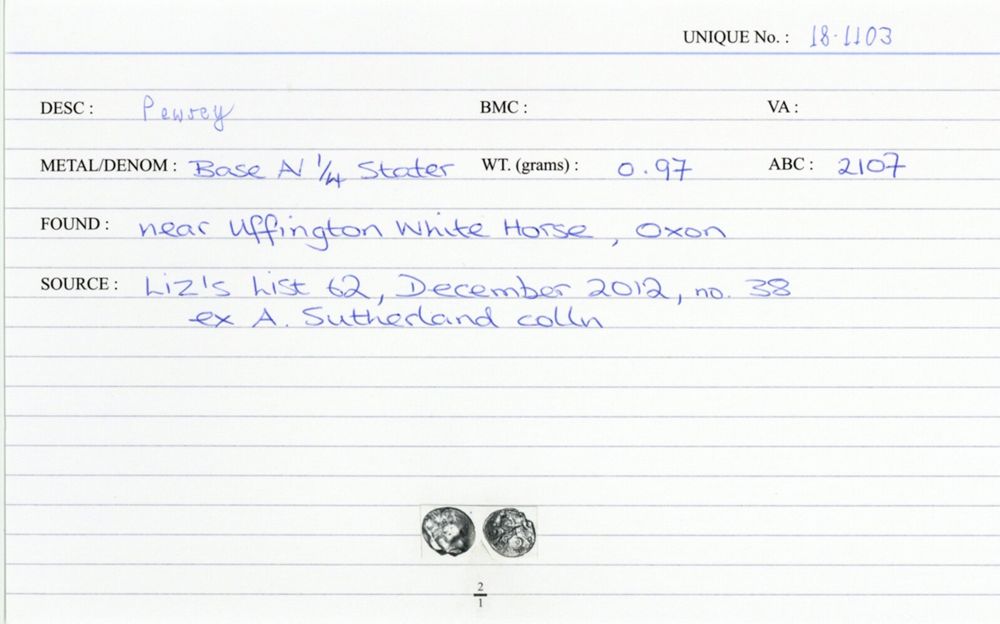 UNIQUE No. : 18·1103
DESC : Pewsey BMC : VA :
METAL/DENOM : Base AV 1/4 Stater WT. (grams) : 0.97 ABC : 2107
FOUND : near Uffington White Horse, Oxon
SOURCE : Liz's List 62, December 2012, no. 38
ex A. Sutherland colln
2
1